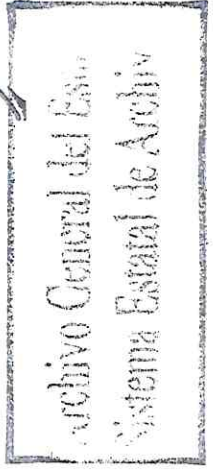 Archivo General del Es
Sistema Estatal de Archiv